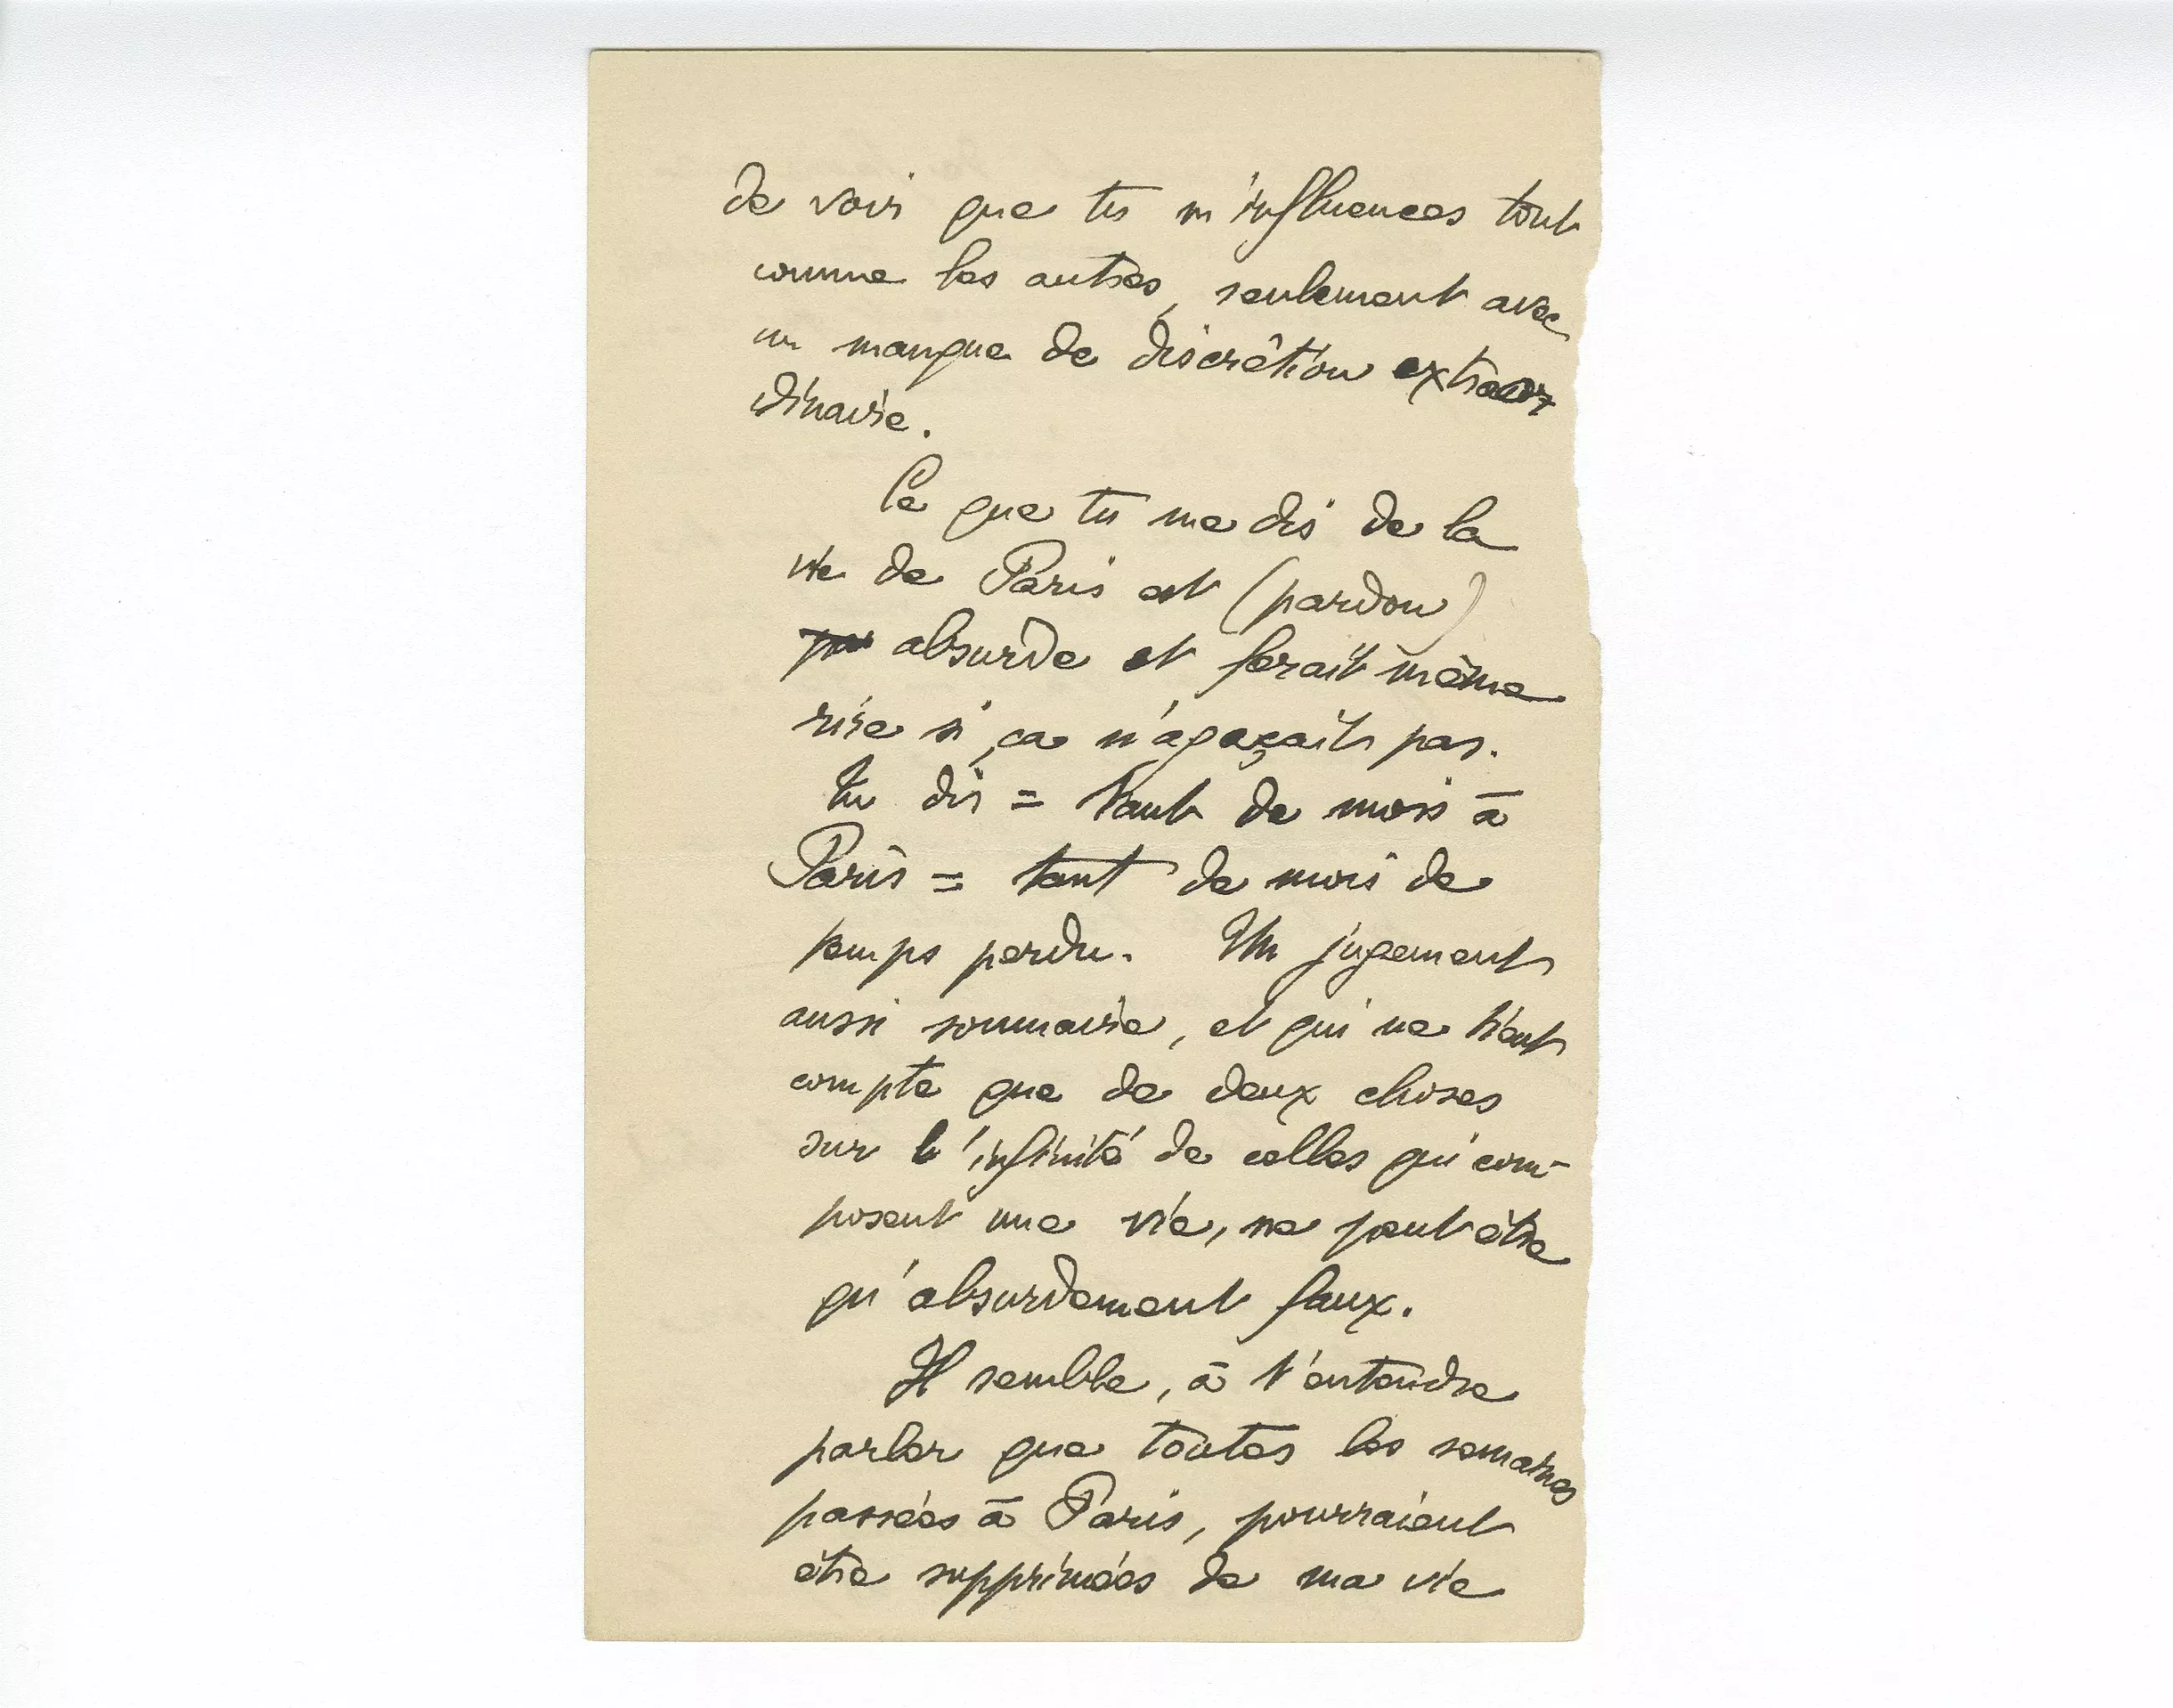 de voir que tu m'influences tout
comme les autres, seulement avec
un manque de discrétion extraor
dinaire.
Ce que tu me dis de la
vie de Paris est (pardon)
absurde et ferait même
rire si ça n'agaçait pas.
Tu dis = tant de mois à
Paris = tant de mois de
temps perdu. Un jugement
aussi sommaire, et qui ne tient
compte que de deux choses
sur l'infinité de celles qui com-
posent une vie, ne peut être
qu'absurdement faux.
Il semble, à t'entendre
parler que toutes les semaines
passées à Paris, pourraient
être supprimées de ma vie